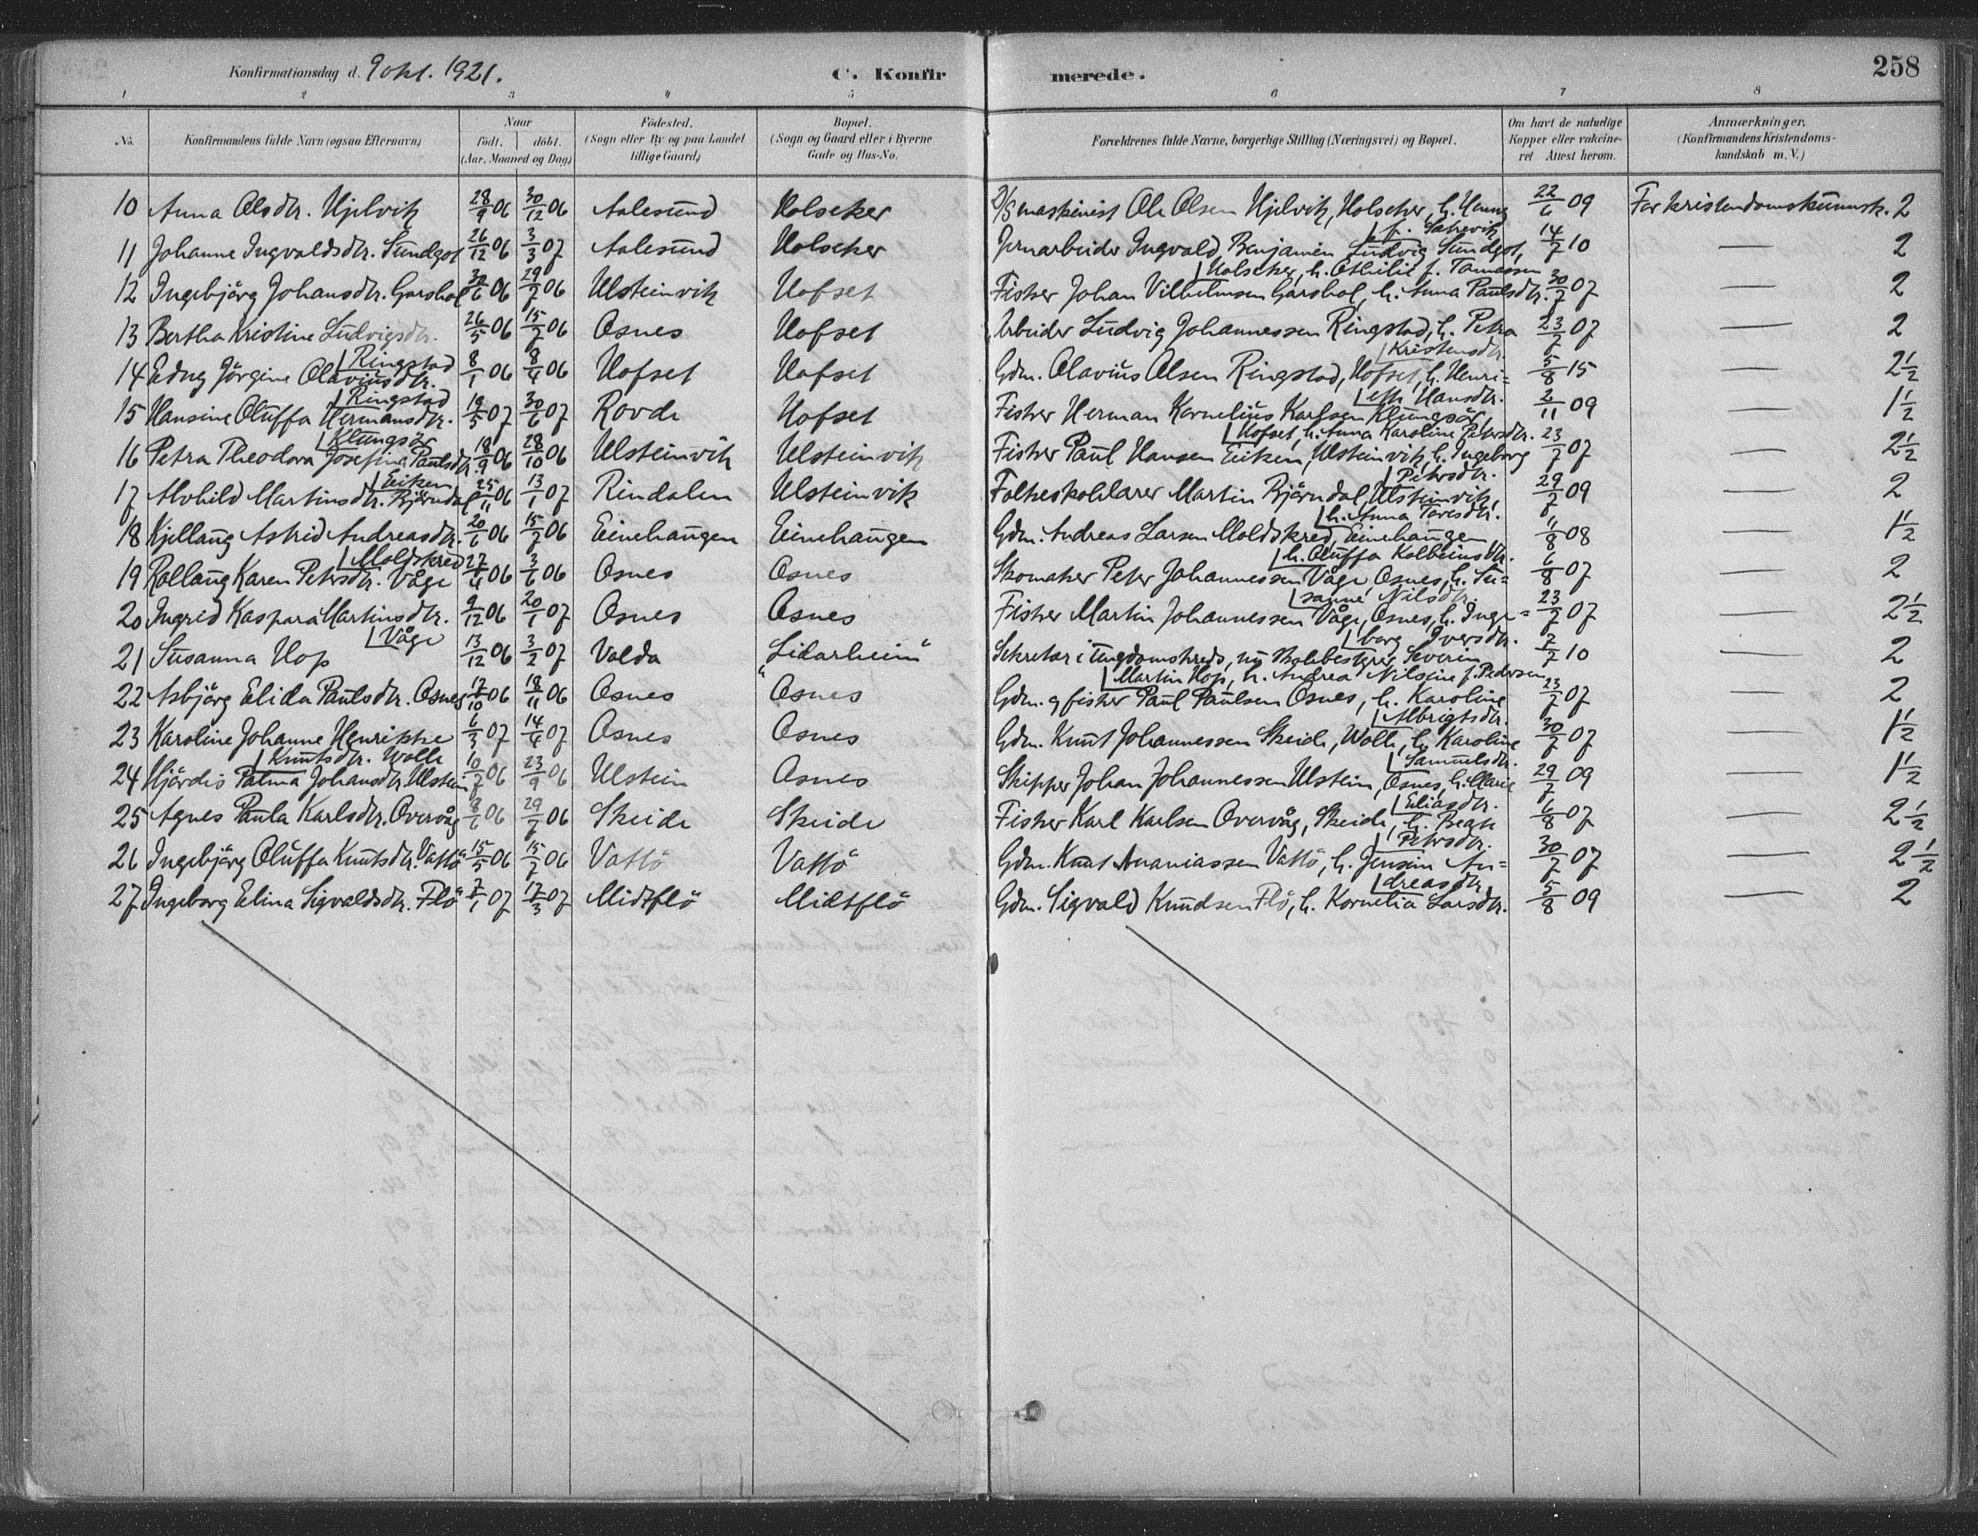 Konfirmationsdag d. 9 okt. 1921.
C. Konfirmerede.
258
1 2 3 4 5 6 7 8
No. Konfirmandens fulde Navn (ogsaa Efternavn) Naar født. døbt. (Aar, Maaned og Dag) Fødested. (Sogn eller By og paa Landet tillige Gaard) Bopæl. (Sogn og Gaard eller i Byerne Gade og Hus-No. Forældrenes fulde Navne, borgerlige Stilling (Næringsvei) og Bopæl. Om havt de naturlige Kopper eller vakcineret Attest herom. Anmærkninger. (Konfirmandens Kristendomskundskab m. V.)
10 Anna Olsdtr. Hjelvik 28/9 06 30/12 06 Aalesund Holseker D/S maskinist Ole Olsen Hjelvik, Holseker, h. Henny f. Sætrevik 22/6 09 For kristendomskunnsk. 2
11 Johanne Ingvaldsdtr. Sundgot 26/12 06 3/3 07 Aalesund Holseker Jernarbeider Ingvald Benjamin Ludvig Sundgot, Holseker, h. Othilie f. Tomassen 14/7 10 — 2
12 Ingebjörg Johansdtr. Garshol 30/6 06 29/7 06 Ulsteinvik Hofset Fisker Johan Vilhelmsen Garshol, h. Anna Paulsdtr. 30/7 07 — 2
13 Bertha Kristine Ludvigsdtr. Ringstad 26/5 06 15/7 06 Osnes Hofset Arbeider Ludvig Johannessen Ringstad, h. Petra Kristensdtr. 23/7 07 — 2
14 Edny Jörgine Olaviusdtr. Ringstad 8/1 06 8/4 06 Hofset Hofset Gdm. Olavius Olsen Ringstad, Hofset, h. Henriette Hansdtr. 5/8 15 — 2½
15 Hansine Oluffa Hermansdtr. Klungsör 19/5 07 30/6 07 Rovde Hofset Fisker Herman Kornelius Karlsen Klungsör, Hofset, h. Anna Karoline Petersdtr. 2/11 09 — 1½
16 Petra Theodora Josefina Paulsdtr. Eiken 18/9 06 28/10 06 Ulsteinvik Ulsteinvik Fisker Paul Hansen Eiken, Ulsteinvik, h. Ingeborg Petersdtr. 23/7 07 — 2½
17 Alvhild Martinsdtr. Bjørndal 25/11 06 13/1 07 Rindalen Ulsteinvik Folkeskolelærer Martin Bjørndal, Ulsteinvik, h. Anna Toresdtr. 29/7 09 — 2
18 Kjellaug Astrid Andreasdtr. Moldskred 20/6 06 15/7 06 Einehaugen Einehaugen Gdm. Andreas Larsen Moldskred, Einehaugen h. Oluffa Kolbeinsdtr. 1/8 08 — 1½
19 Rollaug Karen Petersdtr. Våge 27/4 06 3/6 06 Osnes Osnes Skomaker Peter Johannessen Våge Osnes, h. Susanne Nilsdtr. 6/8 07 — 2
20 Ingrid Kaspara Martinsdtr. Våge 9/12 06 20/1 07 Osnes Osnes Fisker Martin Johannessen Våge, Osnes, h. Ingeborg Iversdtr. 23/7 07 — 2½
21 Susanna Hop 13/12 06 3/2 07 Volda "Lidarheim" Sekretær i Ungdomskreds, nu skolebestyrer Severin Martin Hop, h. Andrea Nilsine f. Pedersen 2/7 10 — 2
22 Asbjørg Elida Paulsdtr. Osnes 12/10 06 18/11 06 Osnes Osnes Gdm. og fisker Paul Paulsen Osnes, h. Karoline Albrigtsdtr. 23/7 07 — 2
23 Karoline Johanne Henrikke Knutsdtr. Wolle 6/3 07 14/4 07 Osnes Osnes Gdm. Knut Johannessen Skeide, Wolle, h. Karoline Samuelsdtr. 30/7 07 — 1½
24 Hjördis Palma Johansdtr. Ulstein 10/7 06 23/9 06 Ulstein Osnes Skipper Johan Johannessen Ulstein, Osnes, h. Marie Eliasdtr. 29/7 09 — 1½
25 Agnes Paula Karlsdtr. Overvåg 8/6 06 29/7 06 Skeide Skeide Fisker Karl Karlsen Overvåg, Skeide, h. Beate Petersdtr. 6/8 07 — 2½
26 Ingebjörg Oluffa Knutsdtr. Vattö 15/5 06 15/7 06 Vattö Vattö Gdm. Knut Ananiassen Vattö, h. Jensine Andreasdtr. 30/7 07 — 2½
27 Ingeborg Elina Sigvaldsdtr. Flö 7/1 07 17/3 07 Midtflö Midtflö Gdm. Sigvald Knudsen Flö, h. Kornelia Larsdtr. 5/8 09 — 2